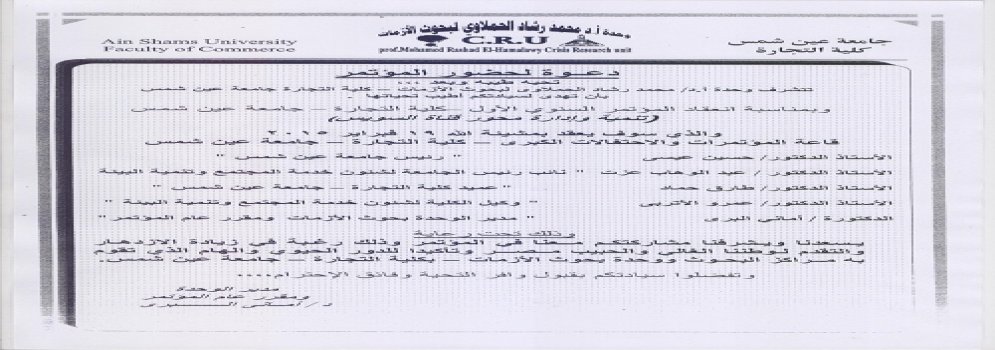 Ain Shams University
Faculty of Commerce
وحدة أ.د محمد رشاد الحملاوي لبحوث الأزمات
C.R.U
prof.Mohamed Rashad El-Hamalawy Crisis Research unit
جامعة عين شمس
كلية التجارة
دعوة لحضور المؤتمر
تحيه طيبه وبعد ...
تتشرف وحدة أ.د/ محمد رشاد الحملاوى لبحوث الأزمات – كلية التجارة جامعة عين شمس
بأن تهدى لسيادتكم أطيب تحياتها ,
وبمناسبة انعقاد المؤتمر السنوي الأول -كلية التجارة – جامعة عين شمس
(تنمية وإدارة محور قناة السويس)
والذي سوف يعقد بمشيئة الله ١٩ فبراير ٢٠١٥
قاعة المؤتمرات والاحتفالات الكبرى – كلية التجارة – جامعة عين شمس
الأستاذ الدكتور/ حسين عيسى " رئيس جامعة عين شمس "
الأستاذ الدكتور / عبد الوهاب عزت " نائب رئيس الجامعة لشئون خدمة المجتمع وتنمية البيئة
الأستاذ الدكتور/ طارق حماد " عميد كلية التجارة – جامعة عين شمس "
الأستاذ الدكتور/ عمرو الأتربى " وكيل الكلية لشئون خدمة المجتمع وتنمية البيئة "
الدكتورة / أمانى البرى " مدير الوحدة بحوث الأزمات ومقرر عام المؤتمر"
وذلك تحت رعاية
يسعدنا ويشرفنا مشاركتكم معنا في المؤتمر وذلك رغبة في زيادة الازدهار
والتقدم لوطننا الغالي والحبيب مصر وتأكيدا للدور الحيوي والهام الذي تقوم
به مراكز البحوث ووحدة بحوث الأزمات – بكلية التجارة – جامعة عين شمس.
وتفضلوا سيادتكم بقبول وافر التحية وفائق الإحترام....
مدير الوحدة
ومقرر عام المؤتمر
د/ أمانى البرى